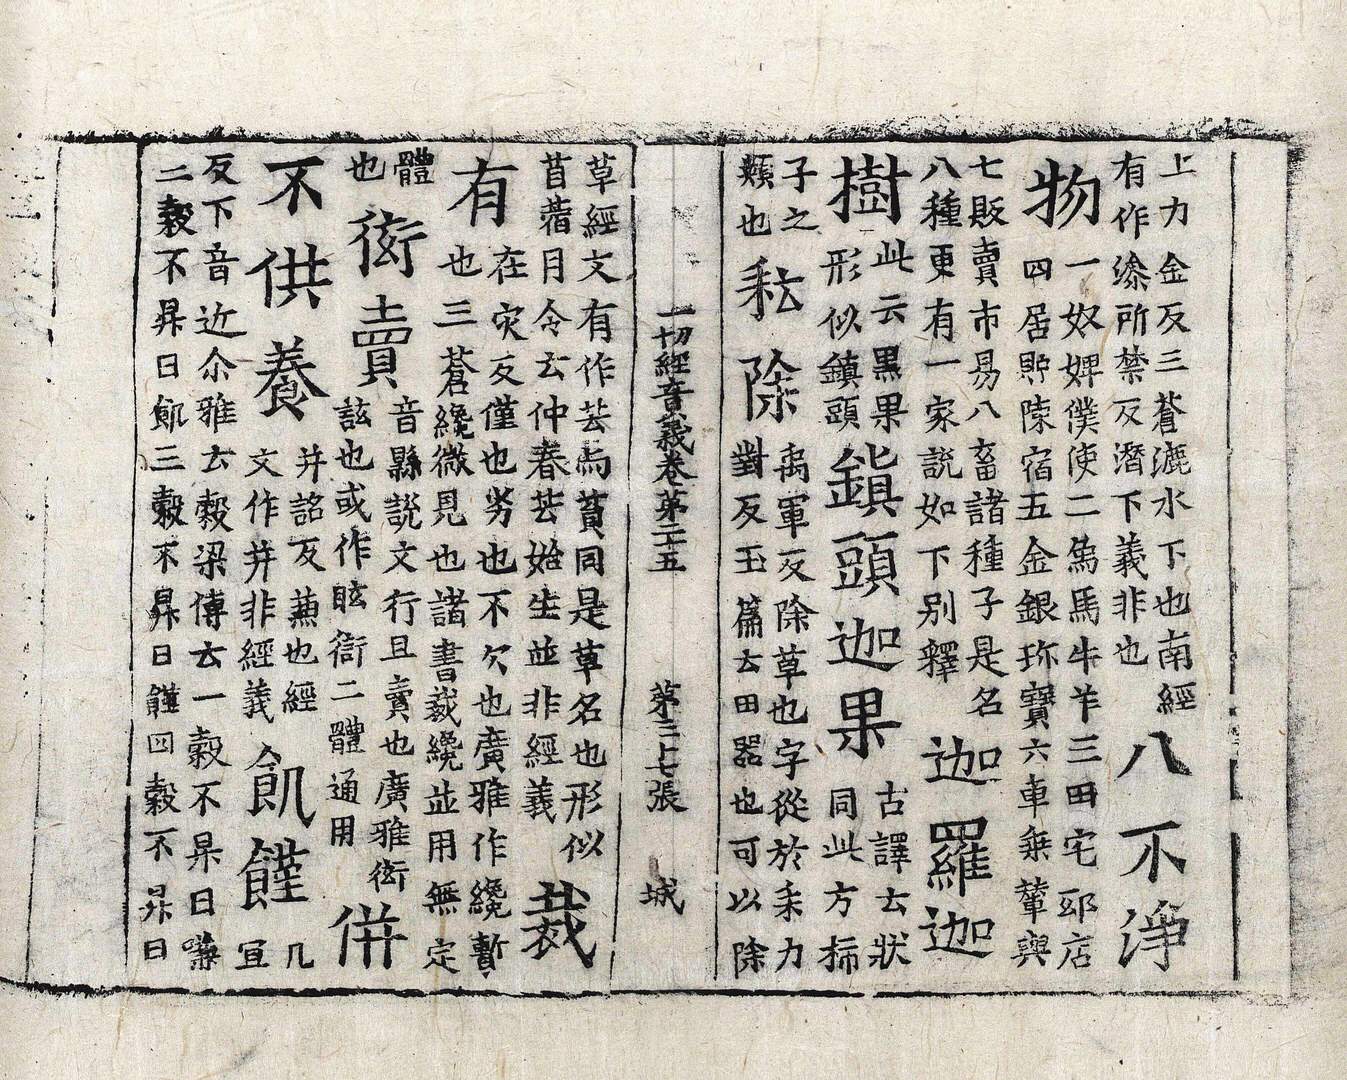 上力金反三蒼漉水下也南經
有作滲所禁反濳下義非也
八不淨
物
一奴婢僕使二爲馬牛羊三田宅邸店
四居貯隶宿五金銀珎寶六車乗輦輿
七販賣市易八畜諸種子是名
八種更有一家説如下別釋
迦羅迦
樹
此云黒果
形似鎮頭
鎮頭迦果
古譯云狀
同此方柹
子之
纇也
耘除
禹軍反除草也字從於耒力
對反玉篇云田器也可以除
一切經音義卷第二十五 第三七張 城
草經文有作芸爲蕒同是草名也形似
苜蓿月令云仲春芸始生並非經義
裁
有
在灾反僅也劣也不欠也廣雅作纔暫
也三蒼纔微見也諸書裁纔並用無定
體
也
衒賣
音縣説文行且賣也廣雅衒
該也或作眩衒二體通用
併
不供養
并詺反兼也經
文作并非經義
飢饉
几
宜
反下音近尒雅云糓梁傳云一糓不昇曰嗛
二糓不昇曰飢三糓不昇曰饉四糓不昇曰